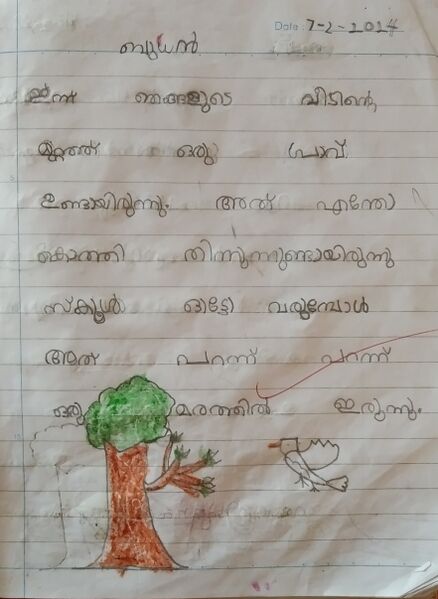 Date : 7-2-2024
ബുധൻ
ഇന്ന് ഞങ്ങളുടെ വീടിന്റെ
മുറ്റത്ത് ഒരു പ്രാവ്
ഉണ്ടായിരുന്നു. അത് എന്തോ
കൊത്തി തിന്നുന്നുണ്ടായിരുന്നു
സ്കൂൾ ഓട്ടോ വരുമ്പോൾ
അത് പറന്ന് പറന്ന്
ഒരു മരത്തിൽ ഇരുന്നു.